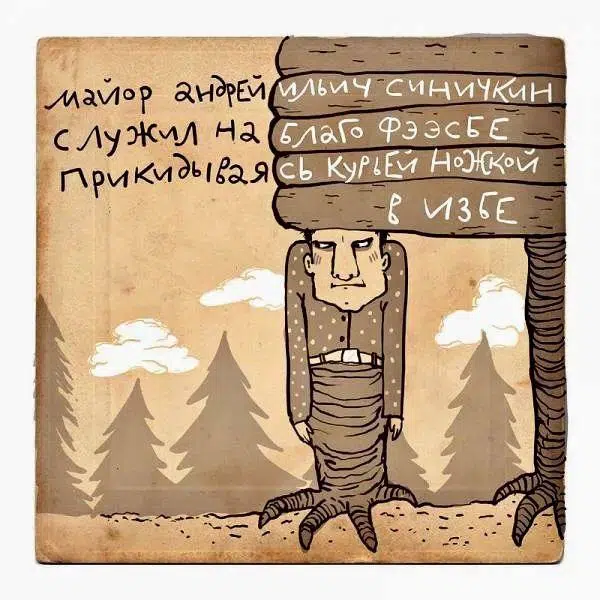 майор андрей ильич синичкин
служил на благо фээсбе
прикидываясь курьей ножкой
в избе